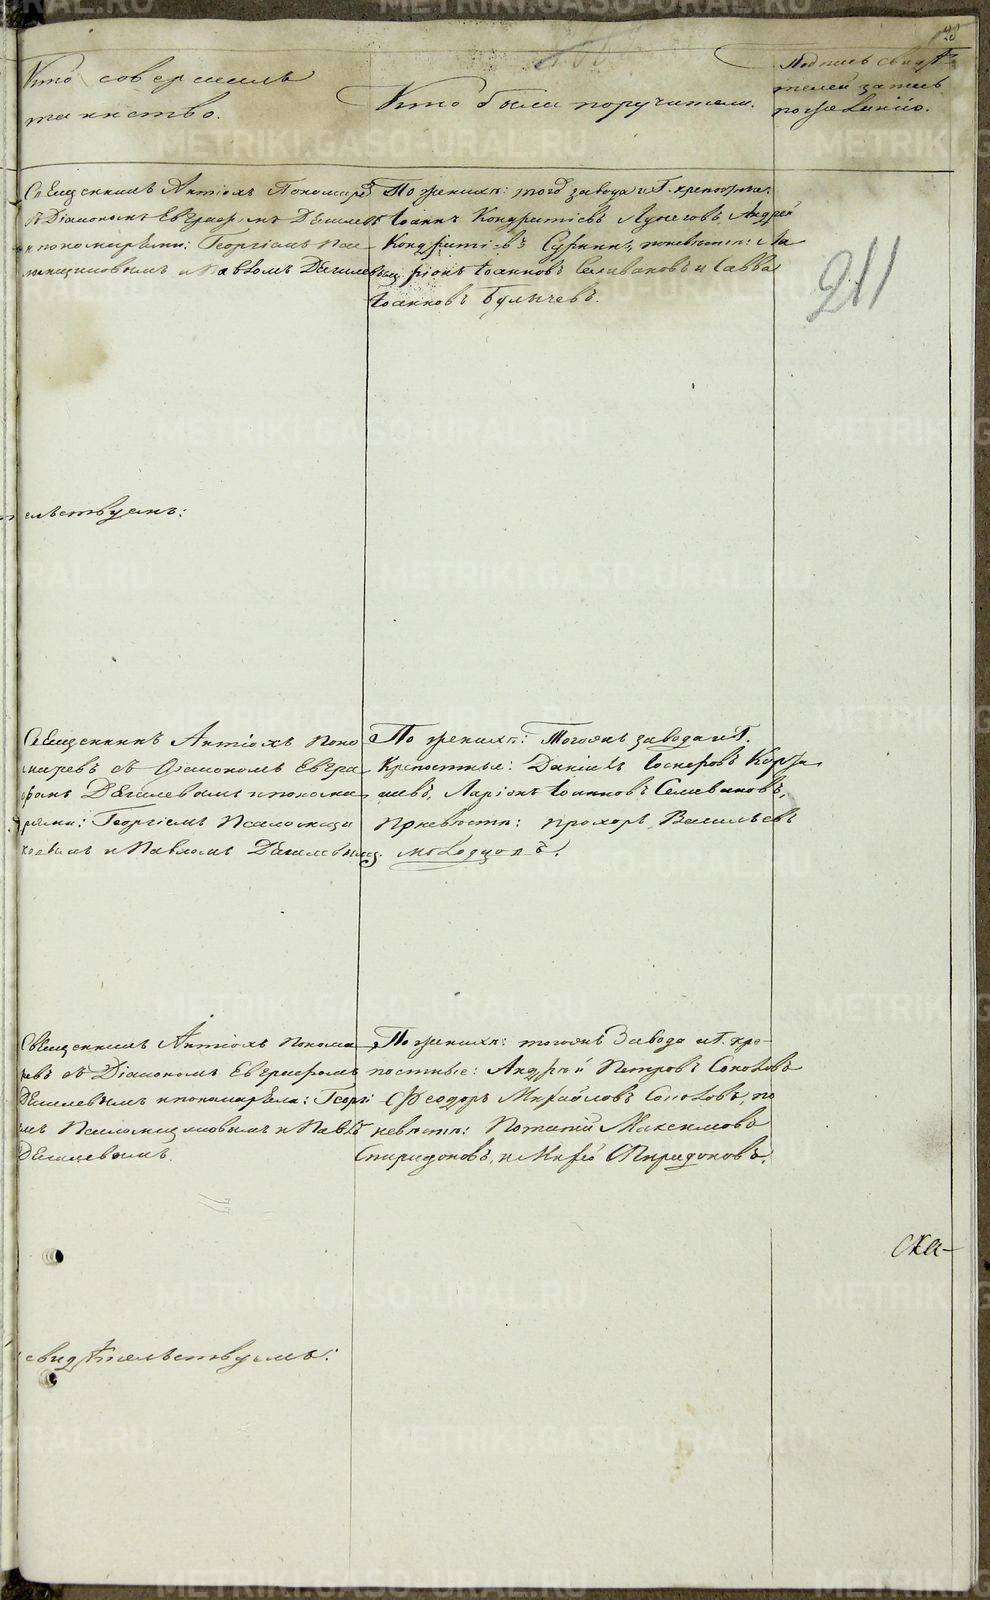 28
Кто совершилъ
таинство.
Кто были поручители.
Подпись свидѣ-
телей запись
по желанію.
Священникъ Антіохъ Пономаре
съ Діакономъ Евграфомъ
и пономарями: Георгіемъ
и Павломъ
По женихѣ: того завода и Г. крепостные:
Іоаннъ Кондратіевъ Лунеговъ, Андрей
Кондратіевъ по невѣстѣ: Ла
ріонъ Іоанновъ Селивановъ и Савва
Іоанновъ Булычевъ.
211
ельствуемъ:
Священникъ Антіохъ Поно
маревъ съ Діакономъ Евгра
фомъ Дягилевымъ и понома
рями: Георгіемъ Псаломщи
ковымъ и Павломъ Дягилевымъ.
По женихѣ: Тогожъ завода и Г.
Крепостные: Даніилъ Іосифовъ
Ларіонъ Іоанновъ Селивановъ,
По невѣстѣ: Прохоръ Васильевъ
Молодцовъ.
Священникъ Антіохъ Понома
ревъ съ Діакономъ Евграфомъ
Дягилевымъ и пономарями: Георгі
емъ Псаломщиковымъ и Павломъ
Дягилевымъ.
По женихѣ: тогожъ Завода и Г. кре-
постные: Андрей Петровъ Соколовъ
Феодоръ Михайловъ Соколовъ, по
невѣстѣ: Потапій Максимовъ
Спиридоновъ, и Спиридоновъ.
Ска-
свидѣтельствуемъ:
METRIKI.GASO-URAL.RU